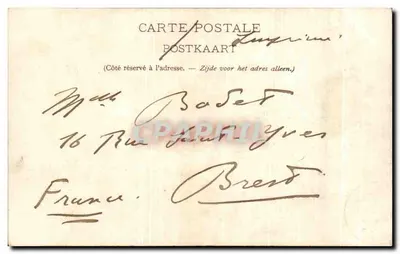 CARTE POSTALE
Imprimé
POSTKAART
(Côté réservé à l'adresse. — Zijde voor het adres alleen.)
Mlle Bodet
16 Rue Saint Yves
CPARAMA
France Brest